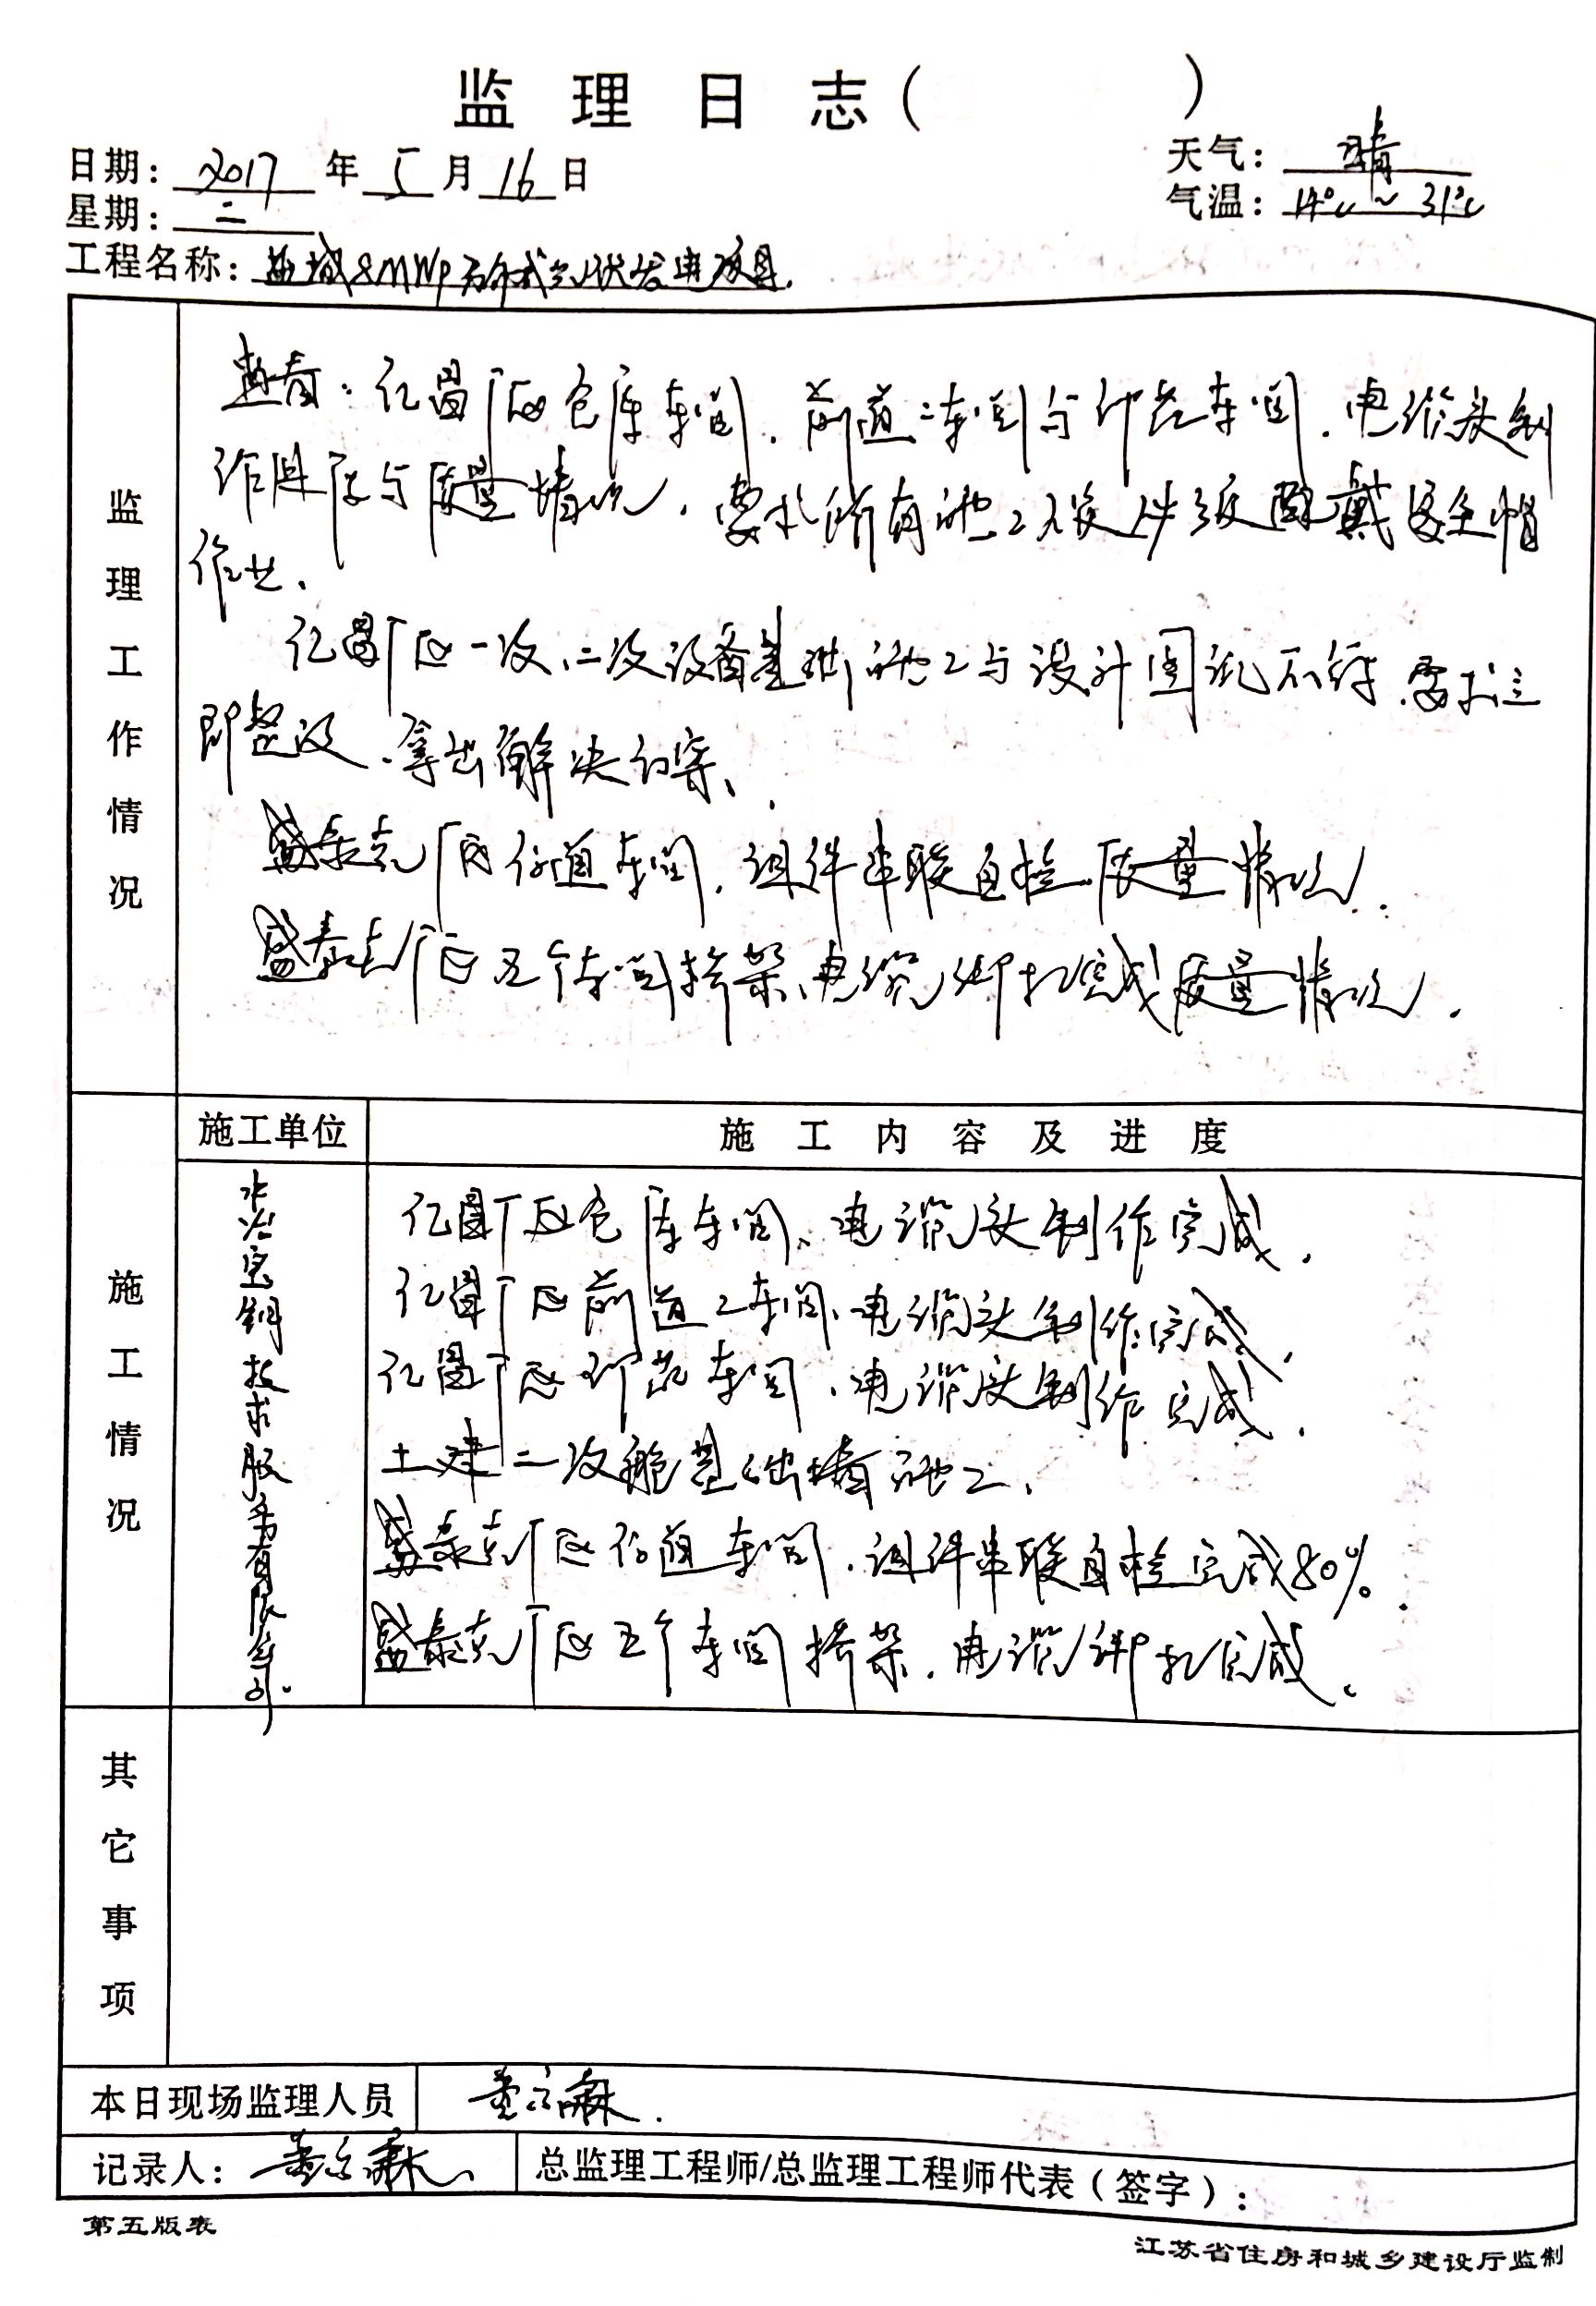 监理日志（ ）
日期：2017年5月16日 天气：晴
星期：二 气温：14℃～31℃
工程名称：盐城8MWp分布式光伏发电项目.
监理工作情况
查看：亿昌厂区仓库车间.前道二车间与印花车间.电缆头制
作进度与质量情况.要求所有施工人员进出须配戴安全帽
作业.
亿昌厂区一次、二次设备基础施工与设计图纸不符.要求立
即整改.拿出解决方案、
盛泰克厂区后道车间.组件串联自检质量情况.
盛泰克厂区五个车间桥架、电缆绑扎完成质量情况.
施工单位 施工内容及进度
施工情况
宝钢技术服务有限公司.
亿昌厂区仓库车间、电缆头制作完成.
亿昌厂区前道二车间、电缆头制作完成.
亿昌厂区印花车间.电缆头制作完成.
土建二次舱基础墙施工.
盛泰克厂区后道车间.组件串联自检完成80%.
盛泰克厂区五个车间桥架.电缆绑扎完成。
其它事项
本日现场监理人员
记录人： 总监理工程师/总监理工程师代表（签字）：
第五版表
江苏省住房和城乡建设厅监制